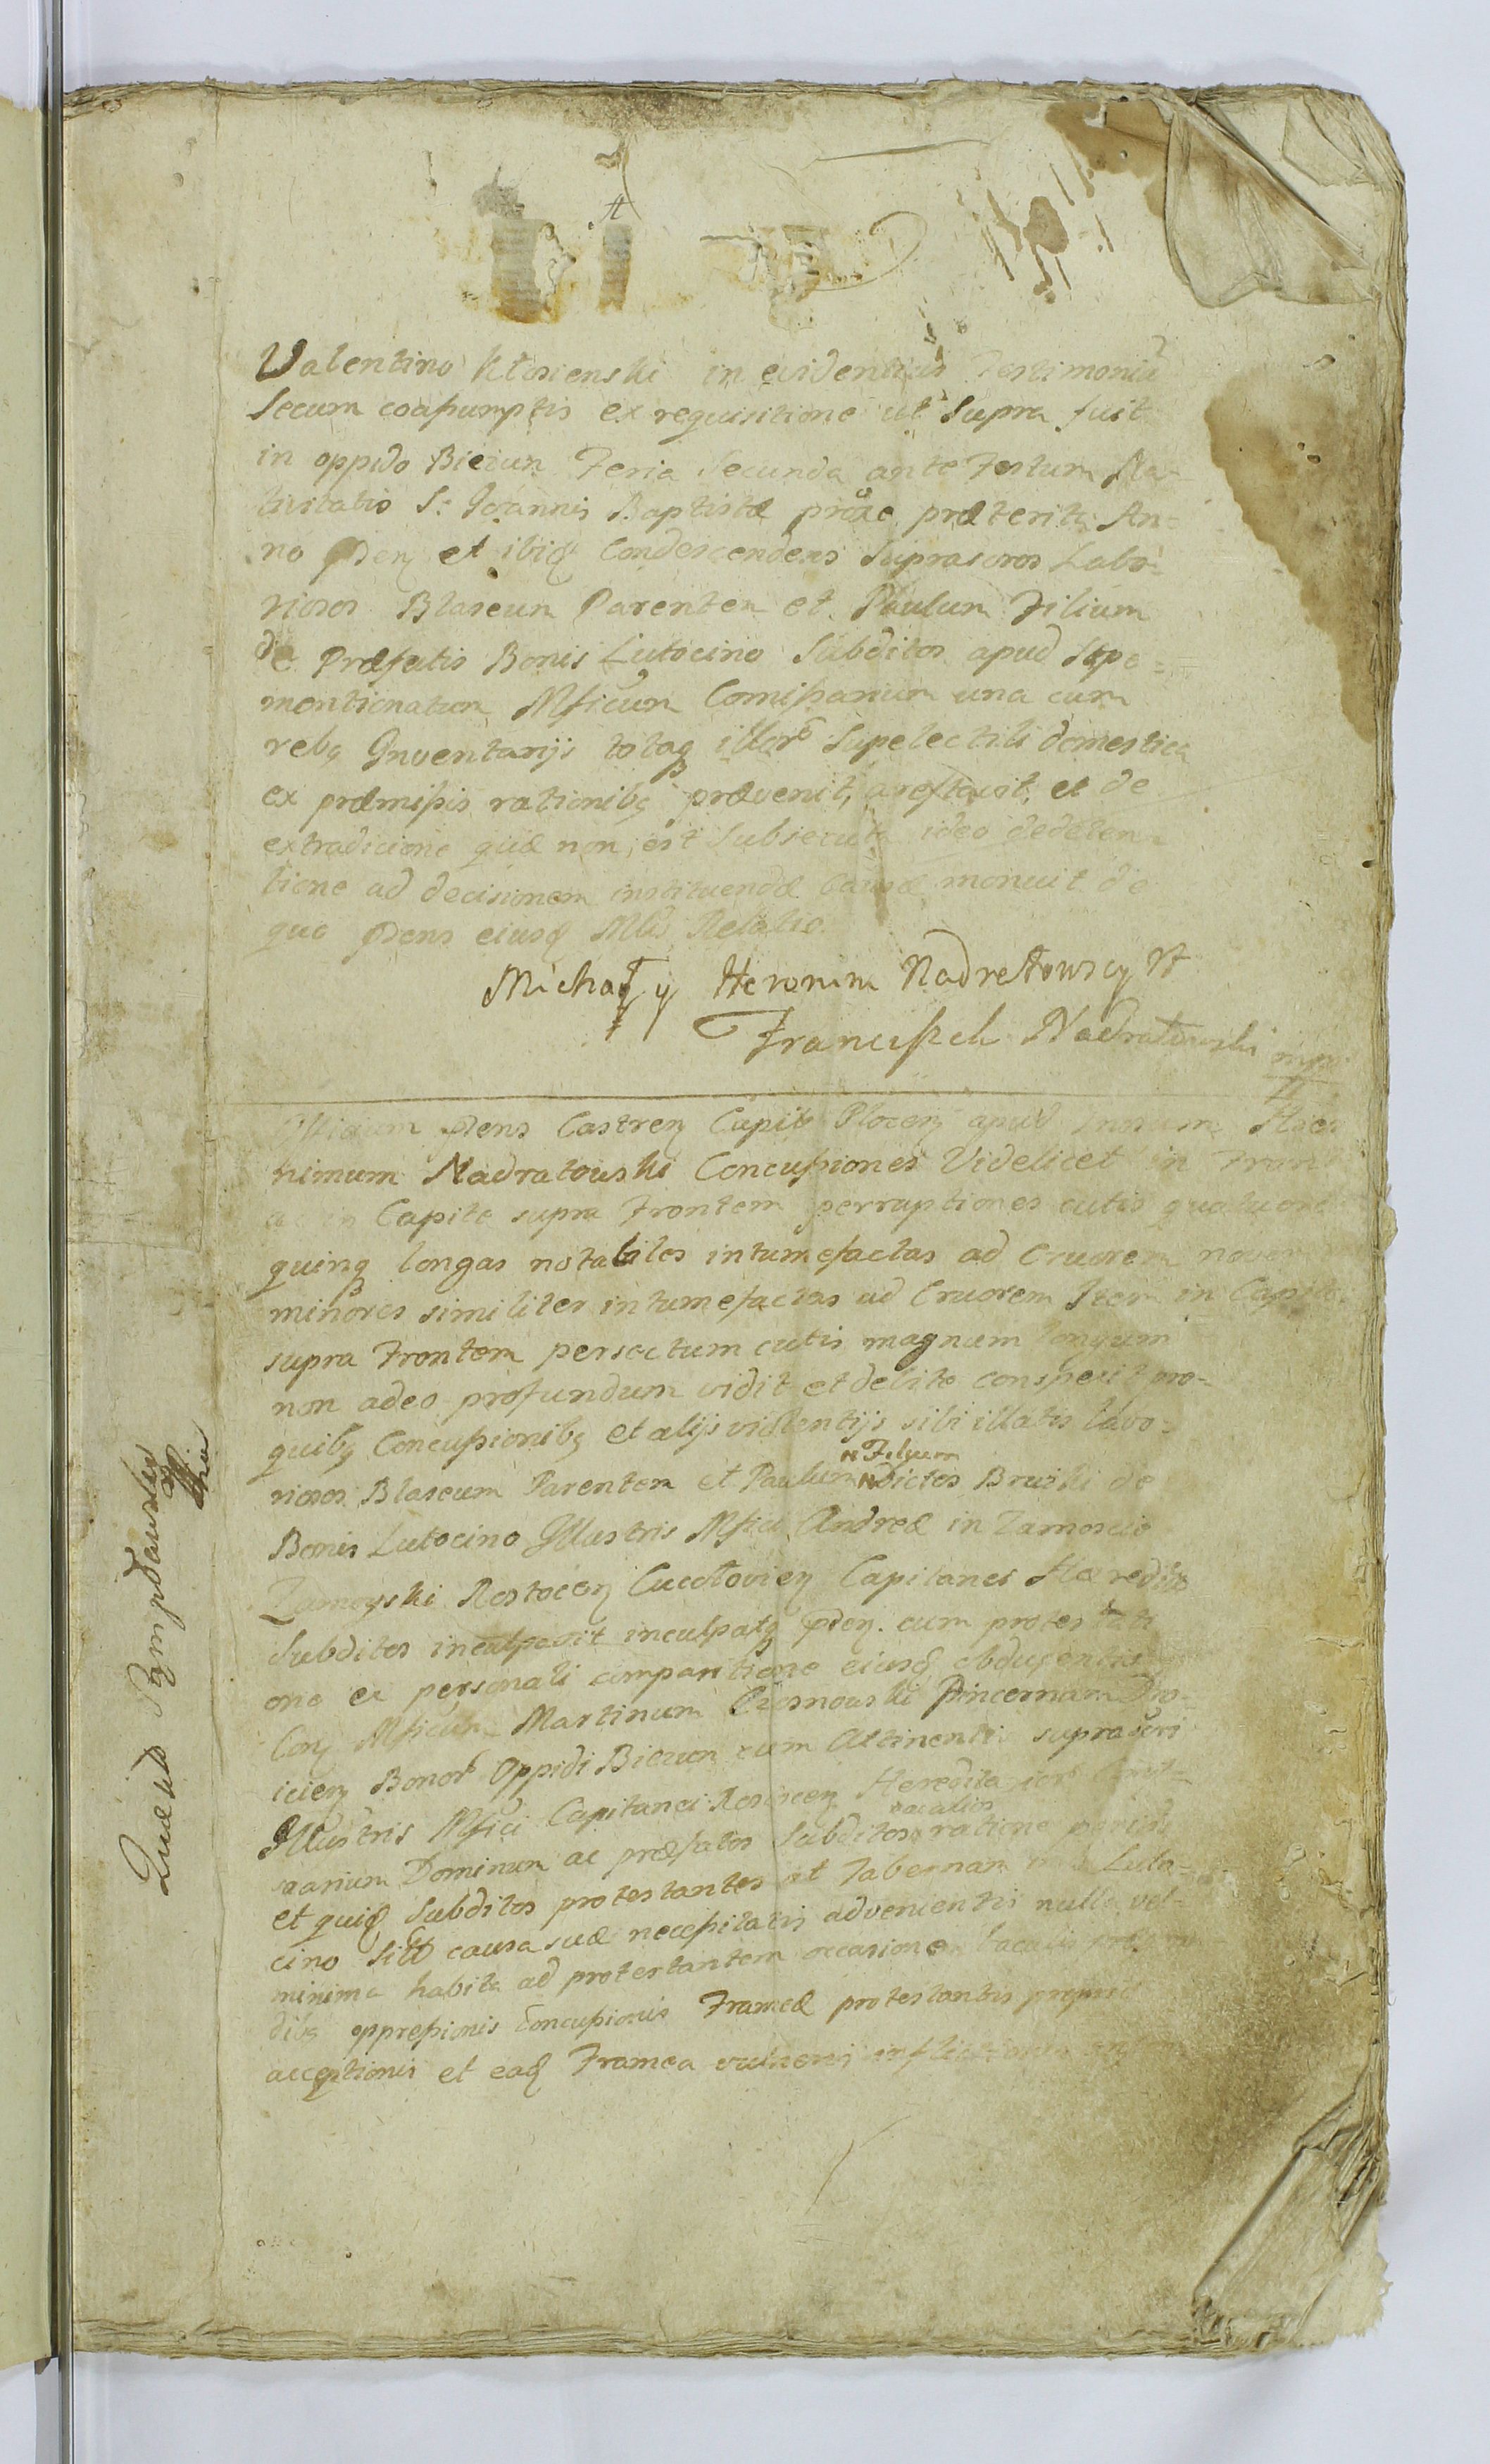 Valentino Kłosienski in evidentius Testimoniũ
secum coaßumptis ex requisitione ut supra fuit
in oppido Biezun Feria Secunda ante Festum Na-
tivitatis S: Joannis Baptistæ proxe præteriti An=
no et ibiq Condescendens suprascros Labo=
riosos Blaseum Parentem et Paulum Filium
de Præfatis Bonis Lutocino Subditos apud Sæpe=
mentionatum Mficum Comißarium una cum
rebq Inventarijs totaq illorũ Supelectili domestica
ex præmißis rationibq prævenit, arestavit, et de
extradicione quæ non est subsecuta ideo dedeten=
tione ad decisionem instituendæ Causæ monuit de
quo pdens eiusq Mlis Relatio.
Michał y Heronim Nadratowscy
Franciszek Nadratowski mpp
Officium pdens Castren Capit Plocen apud Hiero
nimum Nadratowski Concußiones Videlicet in Fronte
in Capite supra Frontem perruptiones cutis quatuor
quinq longas notabiles intumefactas ad Cruorem novem
minores similiter intumefactas ad Cruorem Item in Capite
supra Frontem persectum cutis magnum longum
non adeo profundum vidit et debite conspexit pro-
quibq Concußionibq et alijs violentijs sibi illatis labo=
riosos Blaseum Parentem et Paulum Filium dictos Bruski de
Bonis Lutocino Illustris Mfici Andreæ in Zamoscie
Zamoyski Rostocen Capitanei Hæreditar
Subditos inculpavit inculpatq pden. cum protestati
one ex personali comparitione eiusq obducentis
Con Mficum Martinum Crosnowski Pincernam
icien Bonorũ Oppidi Biezun cum Attinentiis suprascri
Illustris Mfici Capitanei Rostocen
sarium Dominum ac præfatos Subditos eacalios ratione
et quiq Subditos protestantes ad Tabernam Luto=
cino causa suæ neceßitatis advenientis nulla vel
minima habita ad protestantem occasione baculis
oppreßionis Concußionis Frameæ protestantis propriæ
acceptionis et eaq Framea vulneris inflictionis